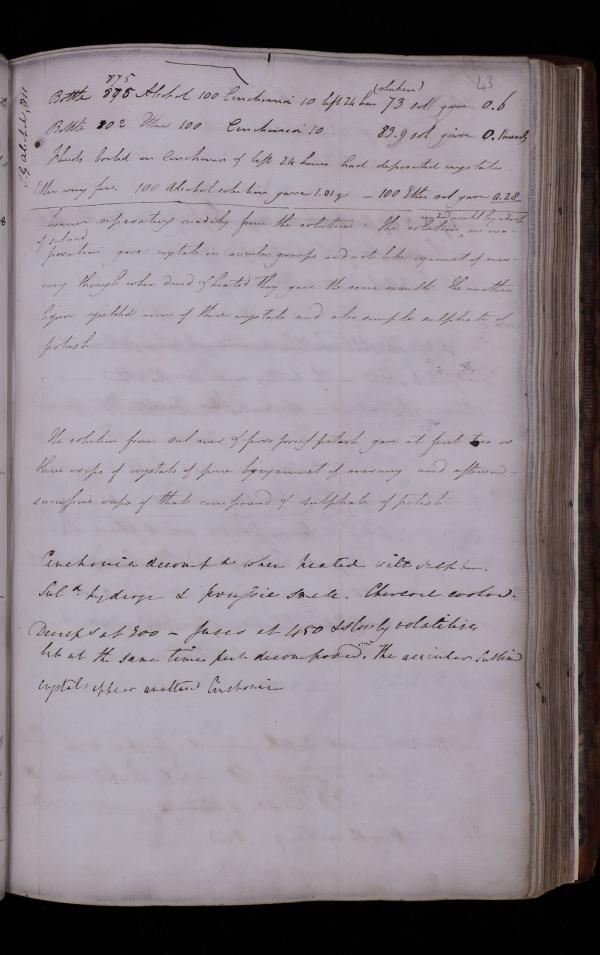 43
875 (shaken)
Bottle 875 Alcohol 100 Cinchonia 10 left 24 hour 73 sol gave 0.6
Bottle 802 Ether 100 Cinchonia 10 83.9 sol give 0.1
Fluids boiled on Cinchonia & left 24 hours had deposited crystals
Ether very few. 100 Alcohol solution gave 1.01 gr – 100 Ether sol gave 0.28
separating readily from the solution. The solution on eva-
poration gave crystals in acicular groups and not like cyanuret of mer-
cury though when dried & heated they gave the same results the mother
liquor yielded more of these crystals and also simple sulphate of
potash
The solution from sul mer & pruss potash gave at first two or
three crops of crystals of pure bicyanuret of mercury and afterward
successive crops of that compound & sulphate of potash
Cinchonia decomp d when heated with sulphur.
Sul d hydrogen & prussic smell. Charcoal color.
at 300 – fuses at 450 & slowly volatilises
but at the same time part decomposed. The acicular sublimed
crystals appear unaltered Cinchonia